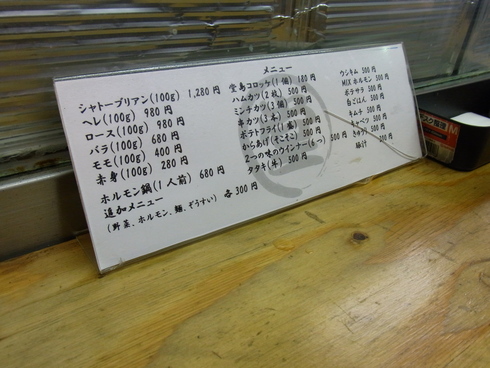 メニュー
シャトーブリアン(100g) 1,280円
ヘレ(100g) 980円
ロース(100g) 980円
バラ(100g) 680円
モモ(100g) 400円
赤身(100g) 280円
ホルモン鍋(1人前) 680円
追加メニュー 各300円
(野菜、ホルモン、麺、ぞうすい)
堂島コロッケ(1個) 180円
ハムカツ(2枚) 500円
ミンチカツ(3個) 500円
串カツ(3本) 500円
ポテトフライ(1盛) 500円
からあげ(そこそこ) 500円
2つの味のウインナー(6つ) 500円
タタキ(牛) 500円
ウシキム 500円
MIX ホルモン 500円
ポテサラ 500円
白ごはん 500円
キムチ 500円
キャベツ 500円
キュウリ 500円
豚汁